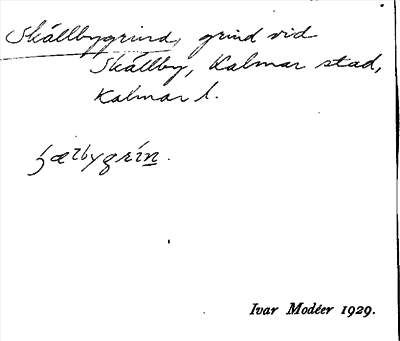 Skällbygrind, grind vid
Skällby, Kalmar stad,
Kalmar l.
Ivar Modéer 1929.